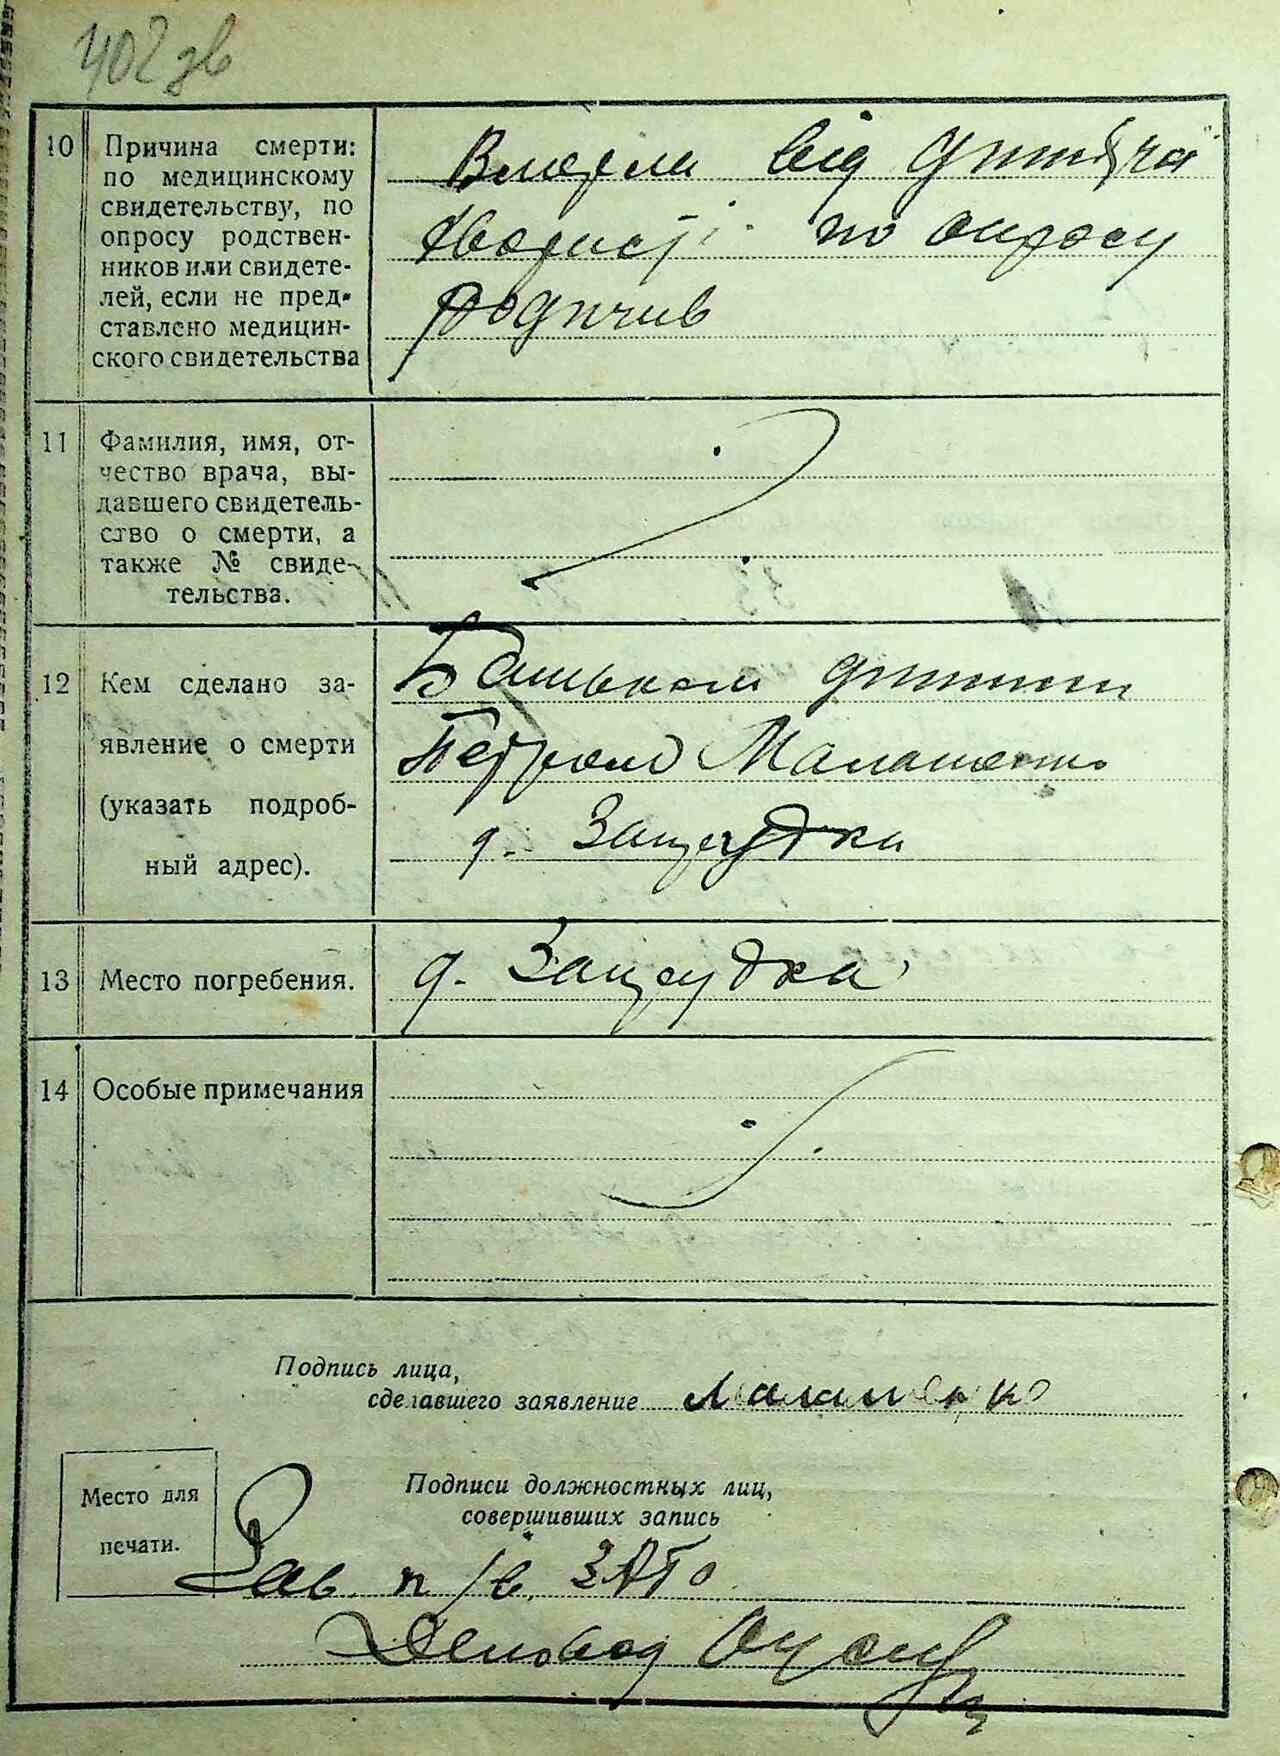 402 зв
10 Причина смерти:
по медицинскому
свидетельству, по
опросу родствен-
ников или свидете-
лей, если не пред-
ставлено медицин-
ского свидетельства
Вмерла від дитячої
хвористі по опросу
родичив
11 Фамилия, имя, от-
чество врача, вы-
давшего свидетель-
ство о смерти, а
также № свиде-
тельства.
12 Кем сделано за-
явление о смерти
(указать подроб-
ный адрес).
Батьком дитини
Петром Малашенко
д.
13 Место погребения.
д.
14 Особые примечания
Подпись лица,
сделавшего заявление Малашенко
Место для
печати.
Подписи должностных лиц,
совершивших запись
Зав. п/в. ЗАГС
Деловод